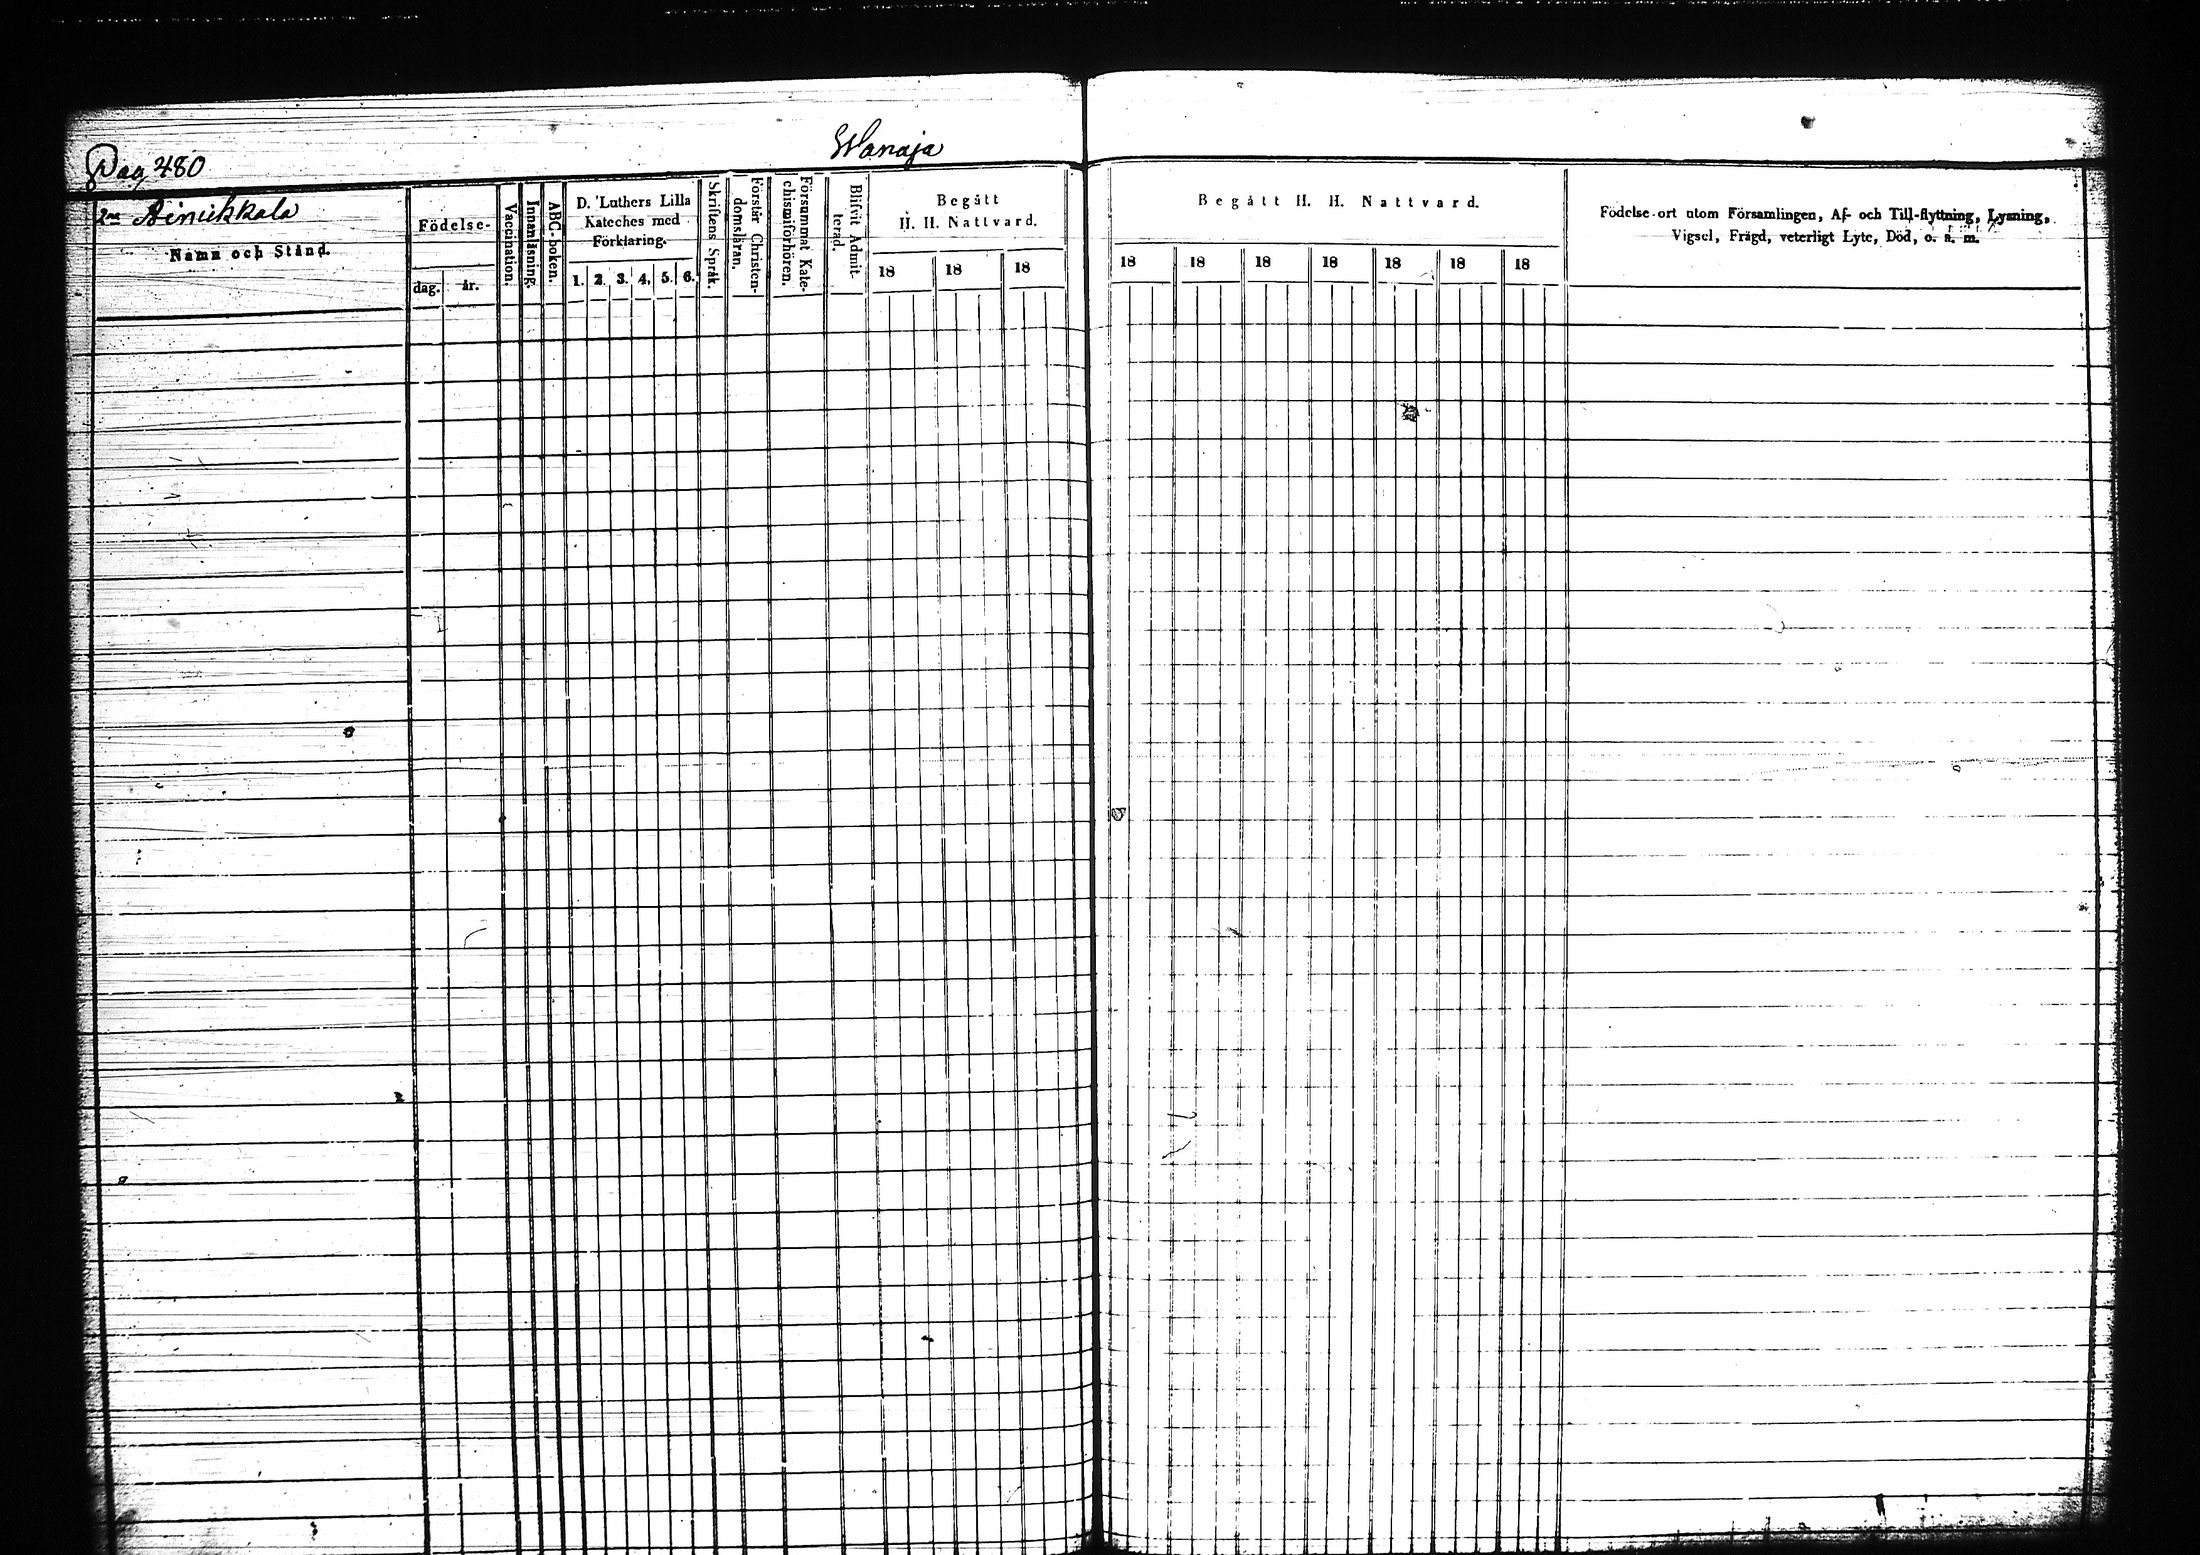 Pag 480
Wanaja
2ne Äinikkala
Namn och Stånd.
Födelse-
dag.
år.
Vaccination.
Innanläsning.
ABC-boken.
D. Luthers Lilla
Kateches med
Förklaring.
1. 2. 3. 4. 5. 6.
Skriftens Språk.
Förstår Christen-
domsläran.
Försummat Kate-
chismiförhören.
Blifvit Admit-
terad.
Begått
H. H. Nattvard.
18 18 18
Begått H. H. Nattvard.
18 18 18 18 18 18 18
Födelse-ort utom Församlingen, Af- och Till-flyttning, Lysning,
Vigsel, Frägd, veterligt Lyte, Död, o. s. m.